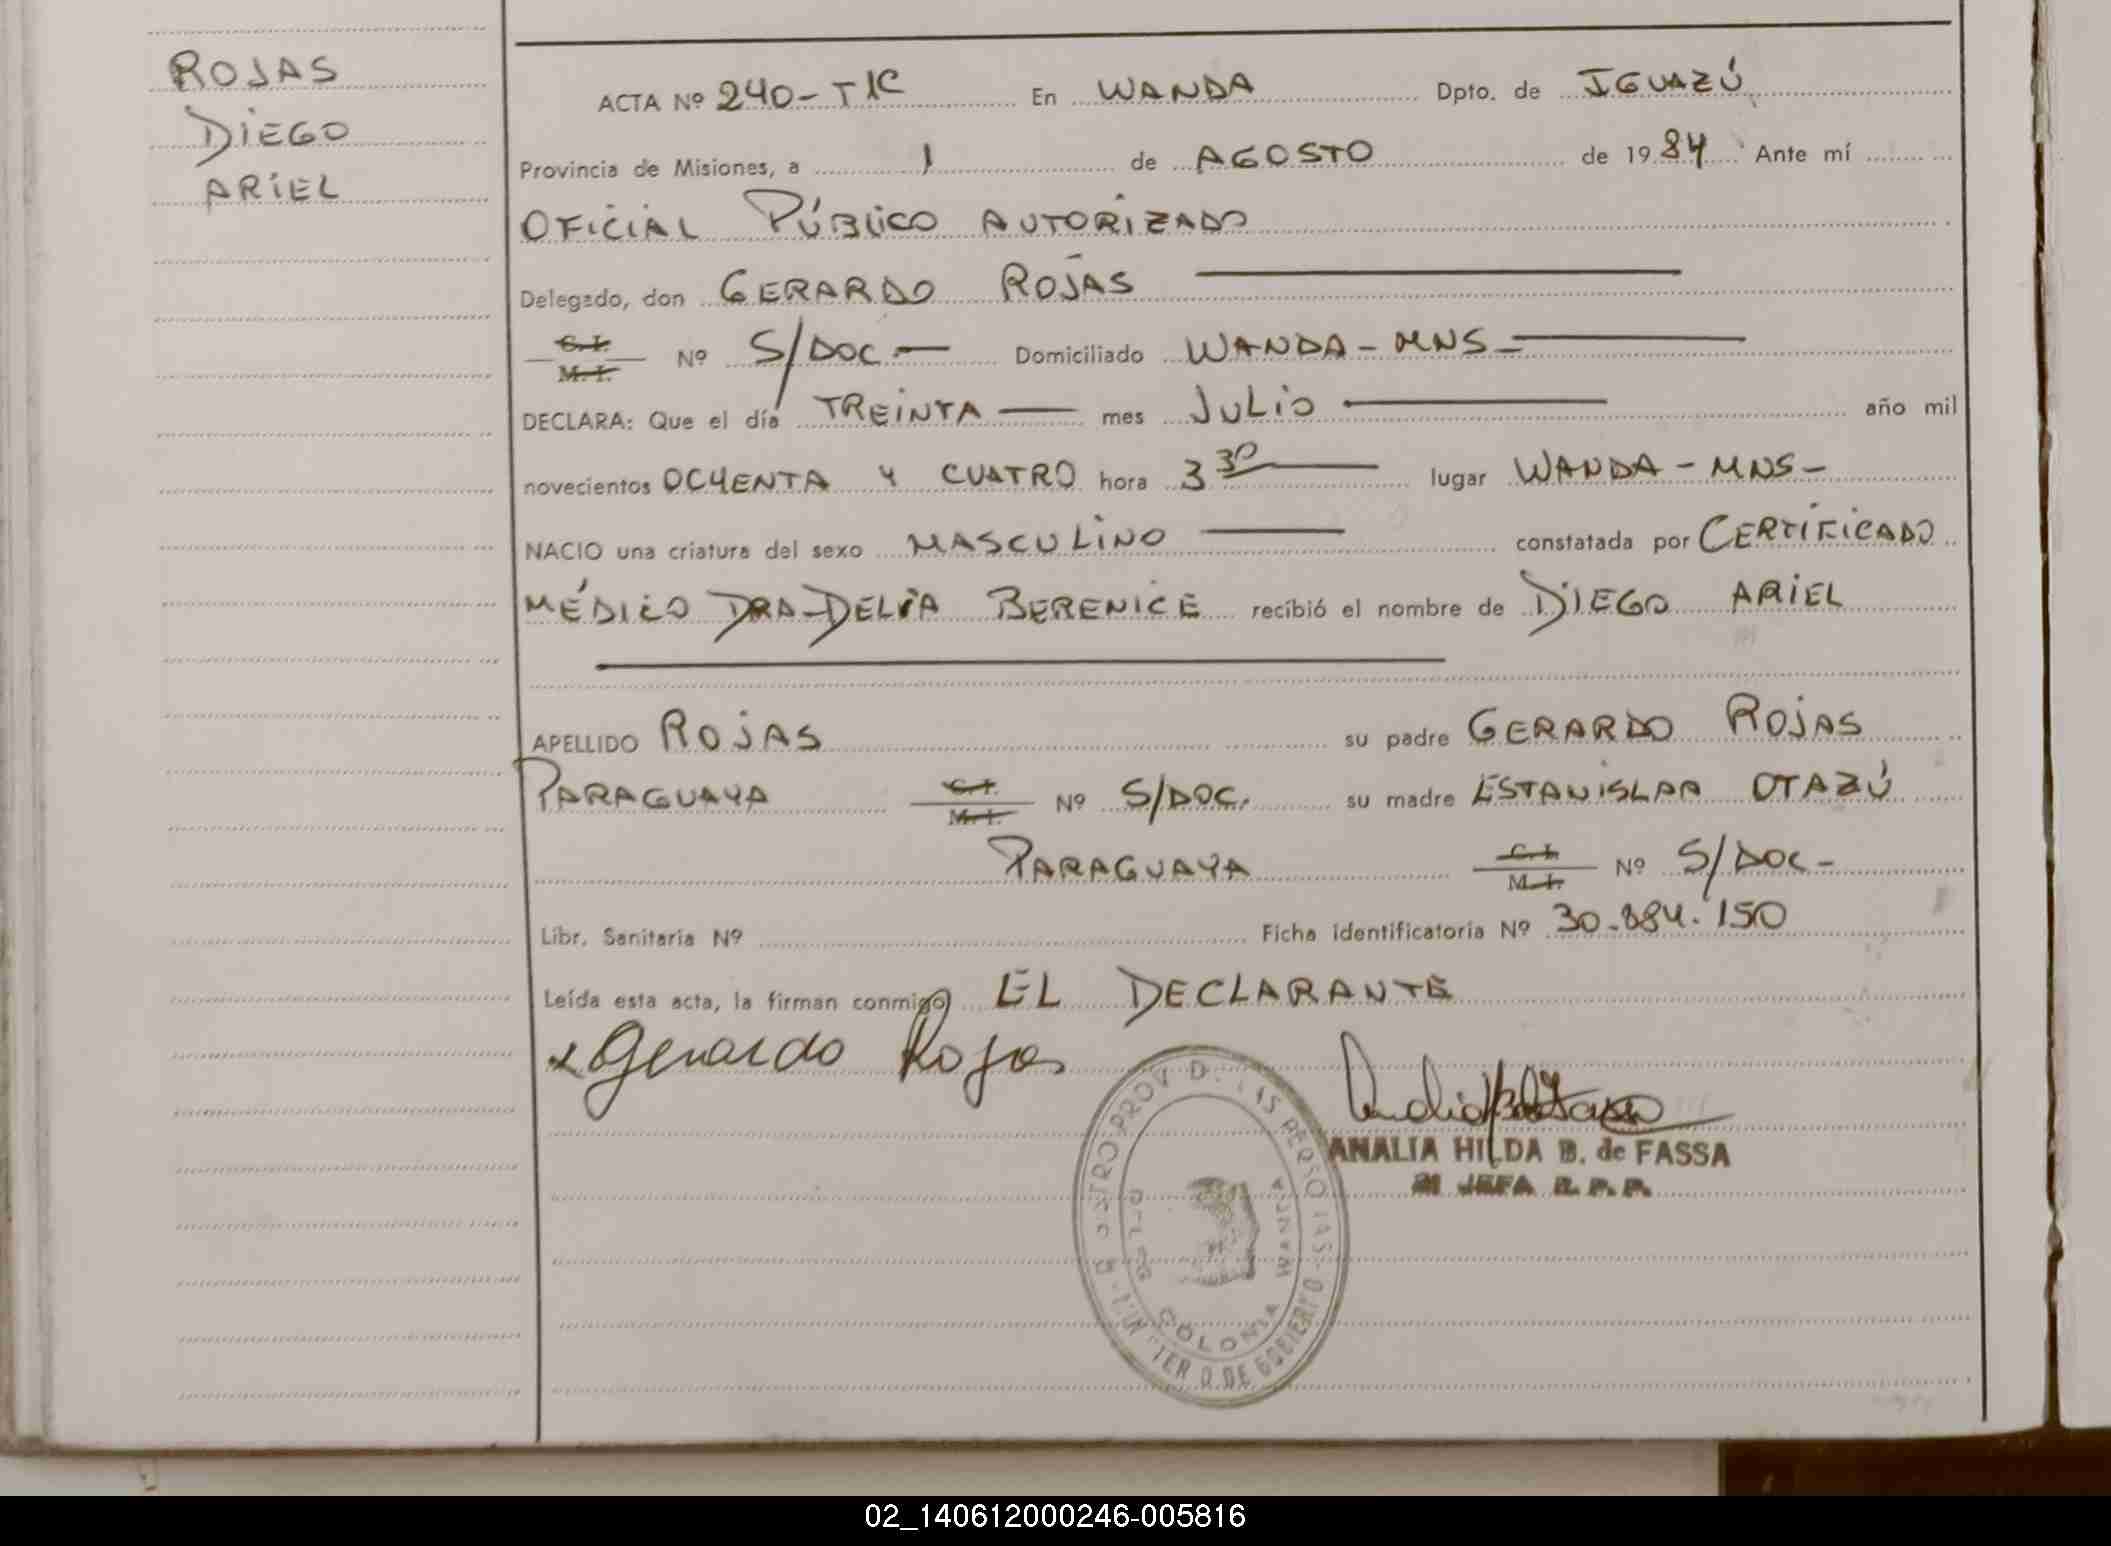 ROJAS
DIEGO
ARIEL
ACTA Nº 240-T1C En WANDA Dpto. de IGUAZÚ
Provincia de Misiones, a 1 de AGOSTO de 1984 Ante mí
OFICIAL PÚBLICO AUTORIZADO
Delegado, don GERARDO ROJAS
C. I.
M. I. Nº S/DOC Domiciliado WANDA - MNS -
DECLARA: Que el día TREINTA mes JULIO año mil
novecientos OCHENTA Y CUATRO hora 3 30 lugar WANDA - MNS -
NACIO una criatura del sexo MASCULINO constatada por CERTIFICADO
MÉDICO DRA-DELIA BERENICE recibió el nombre de DIEGO ARIEL
APELLIDO ROJAS su padre GERARDO ROJAS
PARAGUAYA C. I. M. I. Nº S/DOC. su madre ESTANISLAA OTAZÚ
PARAGUAYA C. I. M. I. Nº S/DOC -
Libr. Sanitaria Nº Ficha identificatoria Nº 30.884.150
Leída esta acta, la firman conmigo EL DECLARANTE
x Gerardo Rojas
ANALIA HILDA B. de FASSA
JEFA R. P. P.
COLONIA
WANDA
DE GOBIERNO
02_140612000246-005816